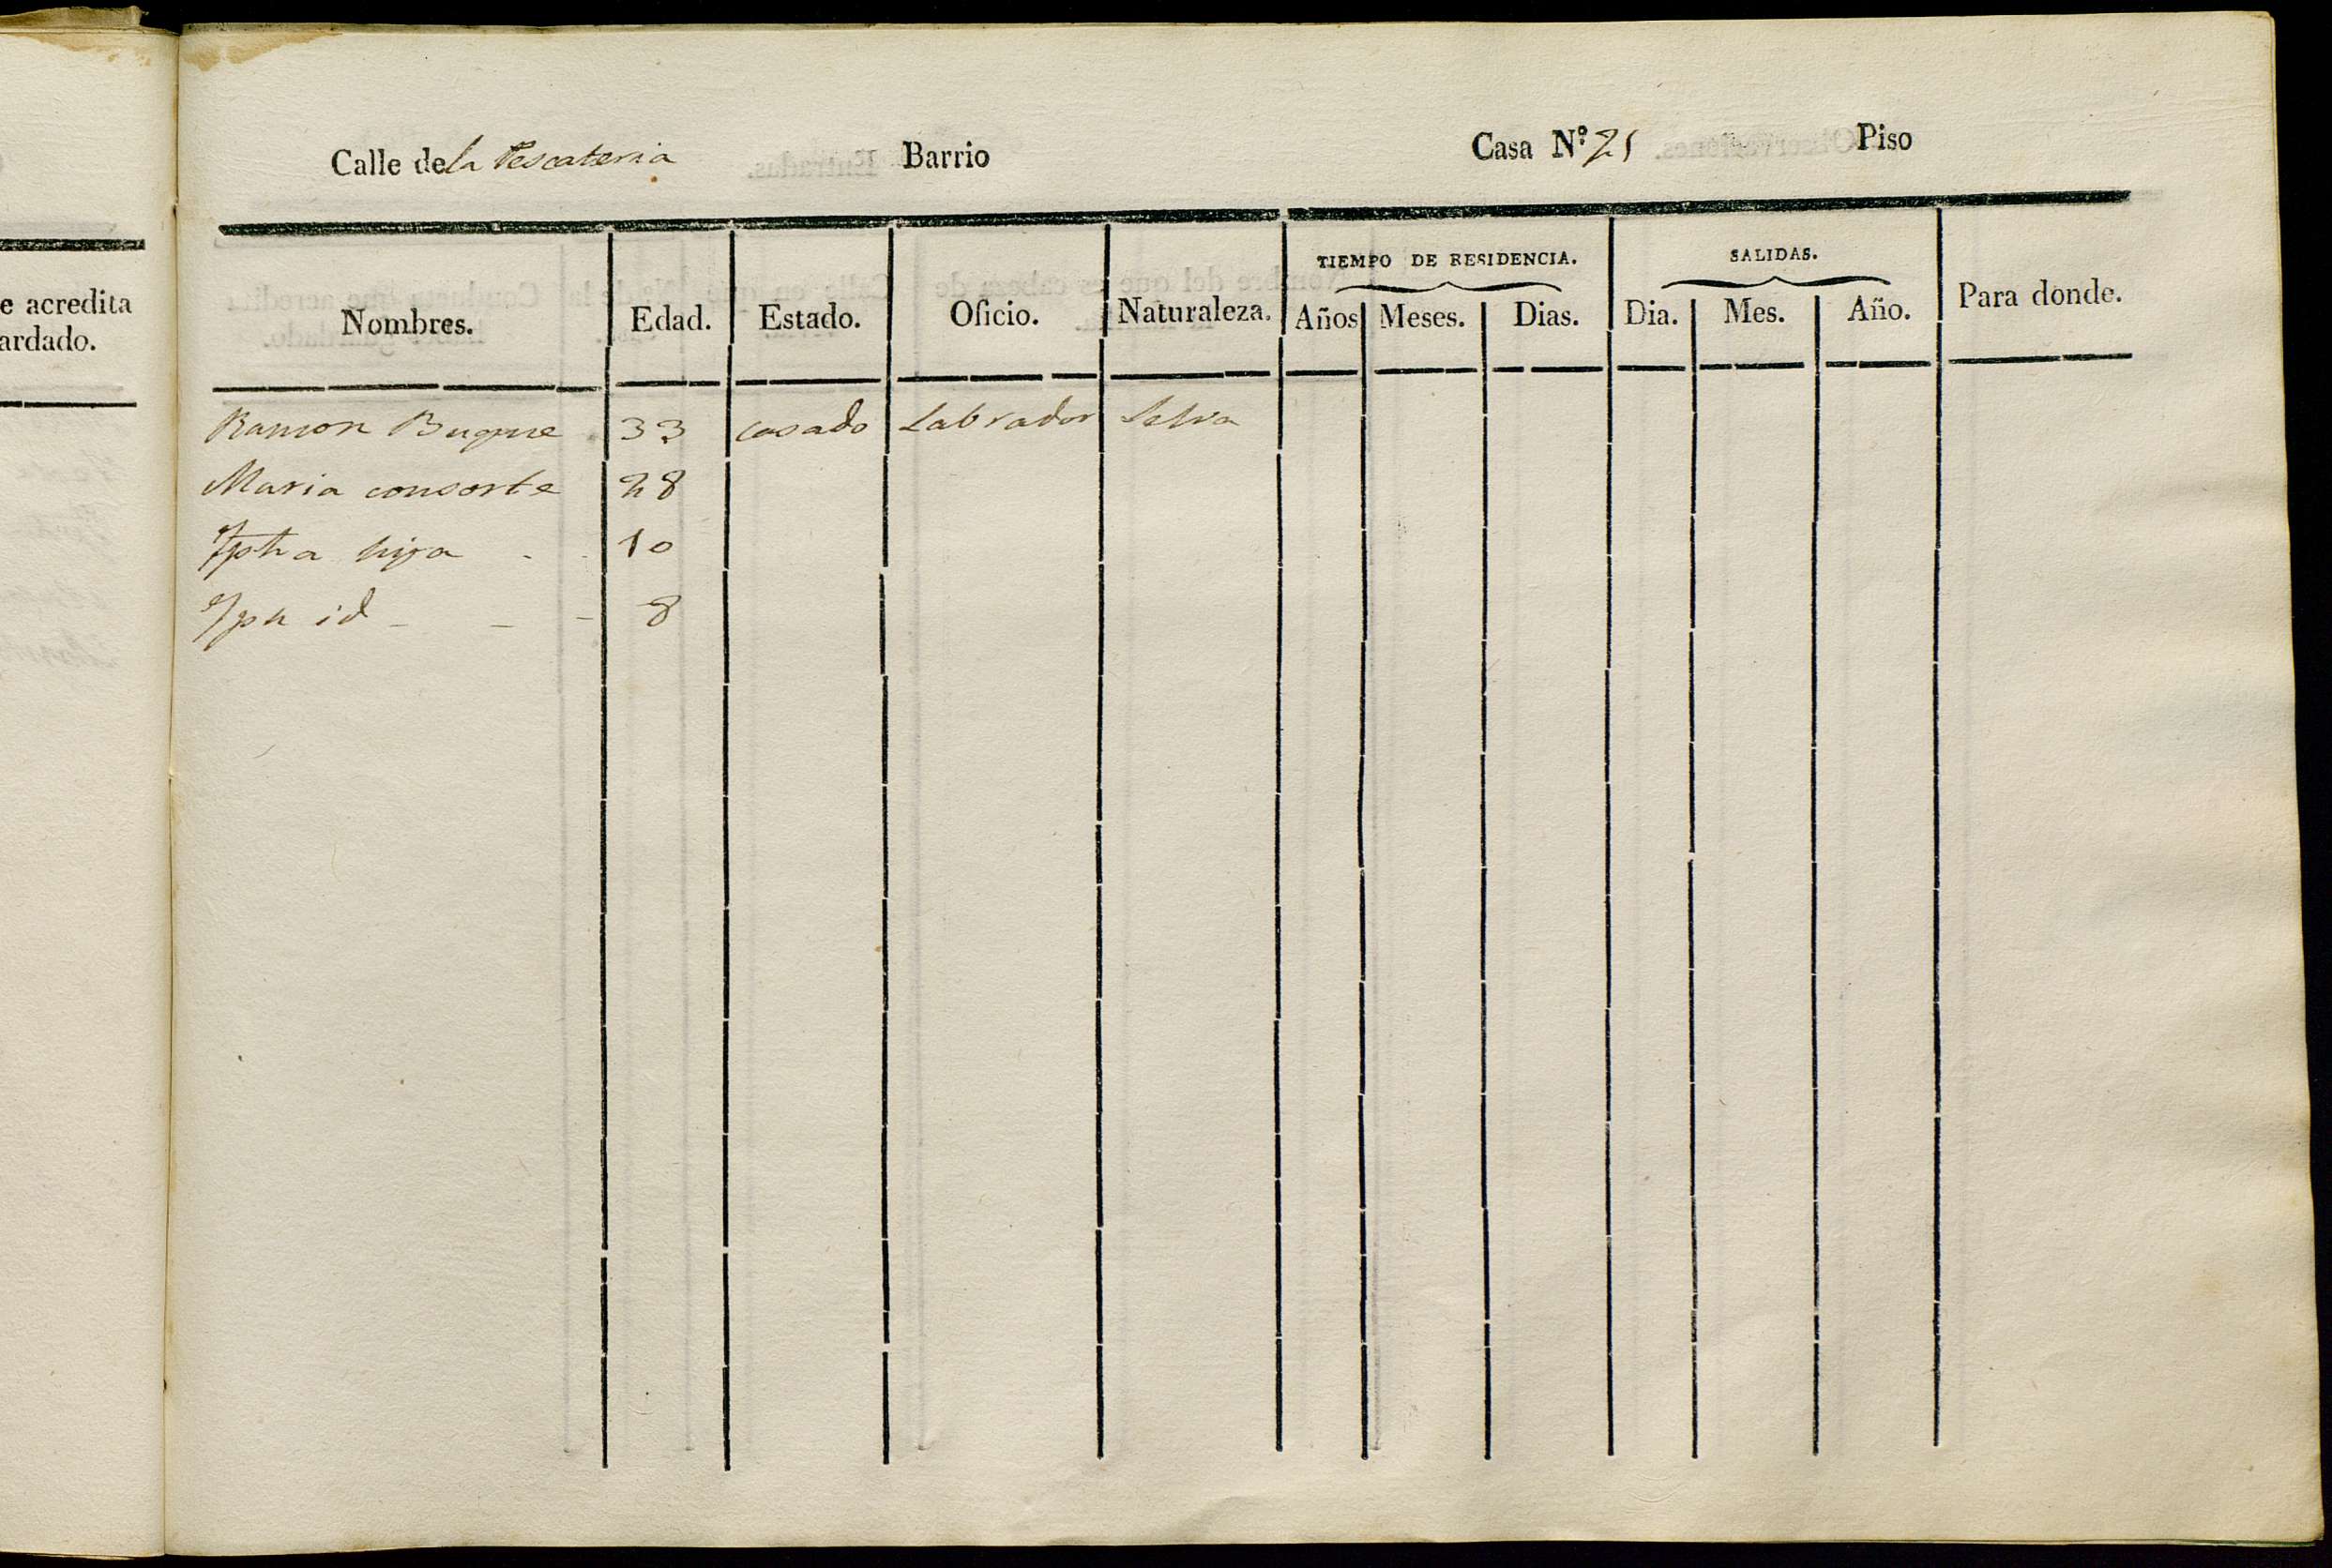 e acredita
ardado.
Calle de la Pescateria Barrio Casa N.º 21 Piso
TIEMPO DE RESIDENCIA. SALIDAS.
Nombres. Edad. Estado. Oficio. Naturaleza. Años Meses. Dias. Dia. Mes. Año. Para donde.
Ramon Buqme 33 casado Labrador Selva
Maria consorte 28
Jpha hija - - 10
Jph id - - - 8